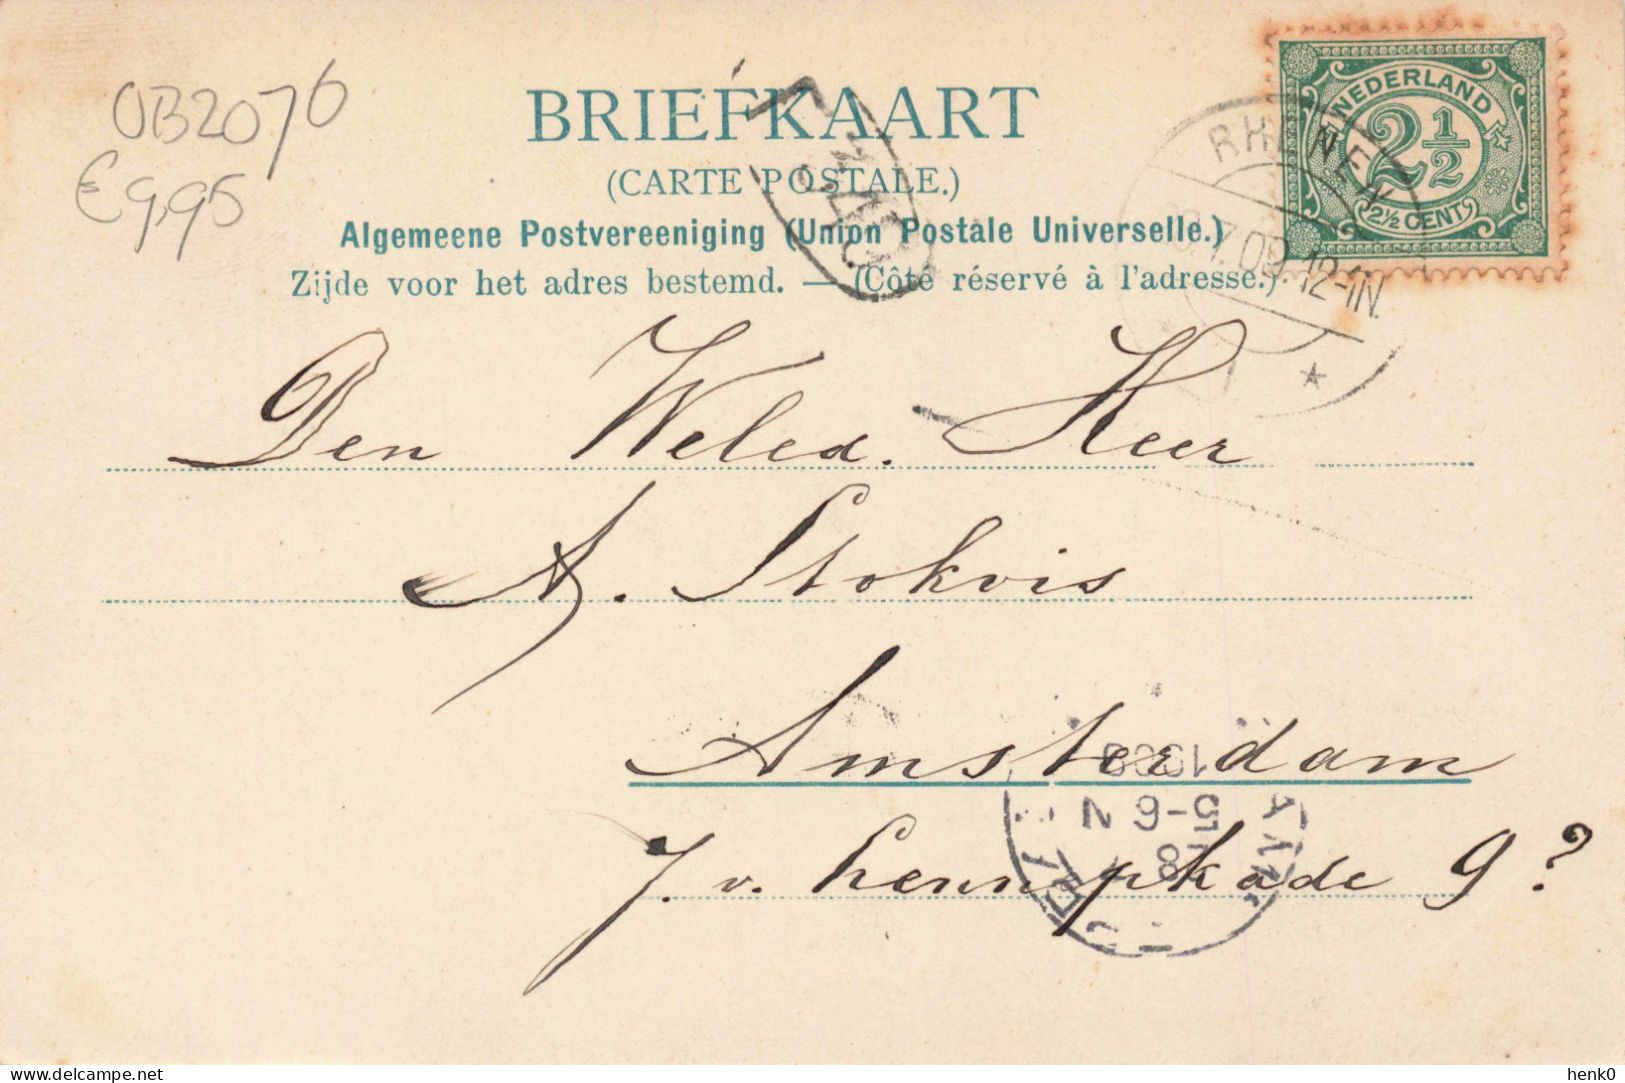 OB2076
€ 9,95
BRIEFKAART
(CARTE POSTALE.)
Algemeene Postvereeniging (Union Postale Universelle.)
Zijde voor het adres bestemd. — (Côté réservé à l'adresse.)
NEDERLAND
2½
2½ CENT
RHENEN
7.09.12-1N.
Den Weled. Heer
A. Stokvis
Amsterdam
J. v. Lennepkade 9?
5-6 N
8
delcampe.net
henk0